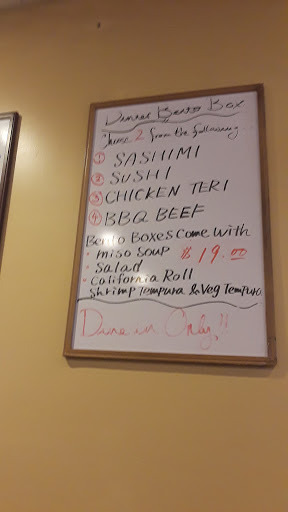 Dinner Bento Box
Choose 2 from the following
① SASHIMI
② SUSHI
③ CHICKEN TERI
④ BBQ BEEF
Bento Boxes come with
• miso soup $19.00
• Salad
• California Roll
Shrimp Tempura & Veg Tempura
Dine in Only!!